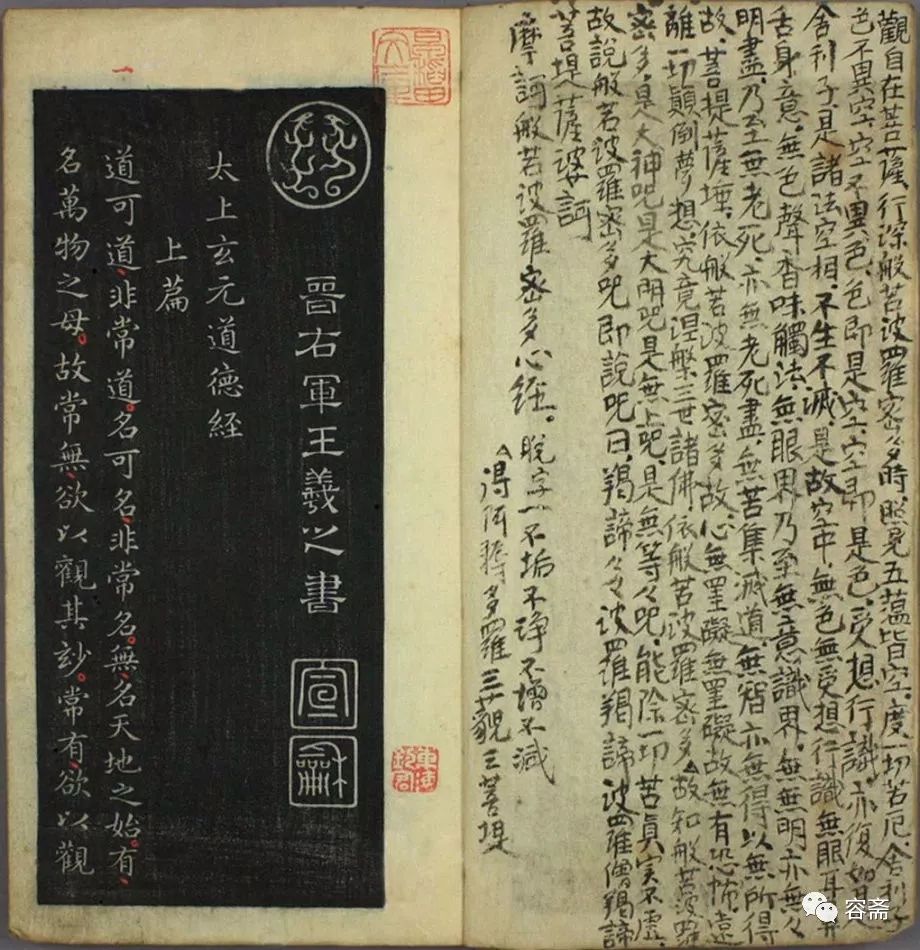 觀自在菩薩、行深般若波羅密多時、照見五蘊皆空、度一切苦厄、舍利子
色不異空、空不異色、色即是空、空即是色、受想行識、亦復如是
舍利子是諸法空相、不生不滅、是故空中、無色無受想行識無眼耳鼻
舌身意、無色聲香味觸法、無眼界乃至無意識界、無無明亦無々
明盡、乃至無老死、亦無老死盡、無苦集滅道、無智亦無得以無所得
故、菩提薩埵、依般若波羅密多故、心無罣礙無罣礙故、無有恐怖、遠
離一切顛倒夢想、究竟涅槃三世諸佛、依般若波羅密多、故知般若波羅
密多、是大神咒是大明咒是無上咒、是無等々咒、能除一切苦真实不虛、
故說般若波羅密多咒即說咒曰、羯諦々々波羅羯諦波羅僧羯諦
菩提薩婆訶
摩訶般若波羅密多心經。脫字一不垢不淨不增不減
得阿耨多羅三藐三菩提
晉右軍王羲之書
宣
和
太上玄元道德經
上篇
道可道、非常道。名可名、非常名。無、名天地之始。有、
名萬物之母。故常無、欲以觀其妙。常有、欲以觀
一
容斋